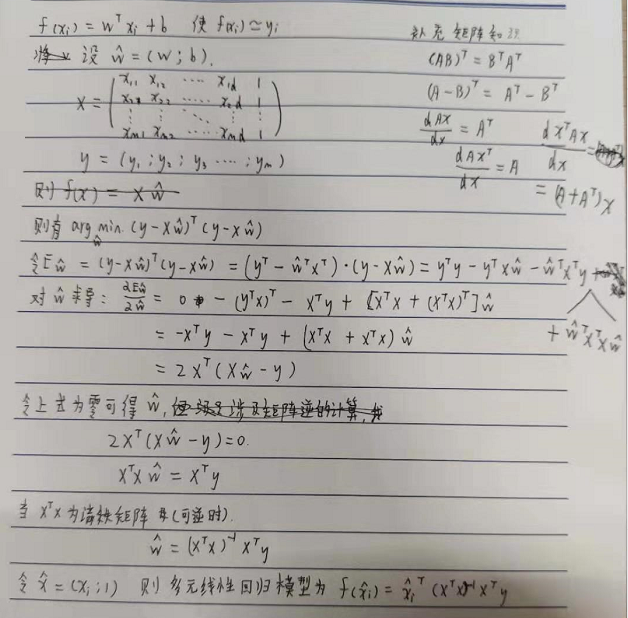 f(xᵢ) = wᵀxᵢ + b 使 f(xᵢ) ≃ yᵢ
设 ŵ = (w; b).
X = ( x₁₁ x₁₂ ⋯ x₁d 1
x₂₁ x₂₂ ⋯ x₂d 1
⋮ ⋮ ⋱ ⋮ ⋮
xm₁ xm₂ ⋯ xmd 1 )
y = (y₁; y₂; y₃ ⋯; ym)
则 f(x) = Xŵ
则有 arg min (y-Xŵ)ᵀ(y-Xŵ)
ŵ
令Eŵ = (y-Xŵ)ᵀ(y-Xŵ) = (yᵀ - ŵᵀXᵀ)·(y-Xŵ) = yᵀy - yᵀXŵ - ŵᵀXᵀy
+ ŵᵀXᵀXŵ
对 ŵ 求导: ∂Eŵ/∂ŵ = 0 - (yᵀX)ᵀ - Xᵀy + [XᵀX + (XᵀX)ᵀ]ŵ
= -Xᵀy - Xᵀy + (XᵀX + XᵀX)ŵ
= 2Xᵀ(Xŵ - y)
令上式为零可得 ŵ, 但涉及矩阵逆的计算,
2Xᵀ(Xŵ - y) = 0.
XᵀXŵ = Xᵀy
当 XᵀX 为满秩矩阵 (可逆时).
ŵ = (XᵀX)⁻¹Xᵀy
令 x̂ = (xᵢ; 1) 则多元线性回归模型为 f(x̂ᵢ) = x̂ᵢᵀ(XᵀX)⁻¹Xᵀy
矩阵知识.
(AB)ᵀ = BᵀAᵀ
(A-B)ᵀ = Aᵀ - Bᵀ
dAX/dx = Aᵀ
dAXᵀ/dx = A
dXᵀAX/dx =
= (A+Aᵀ)X